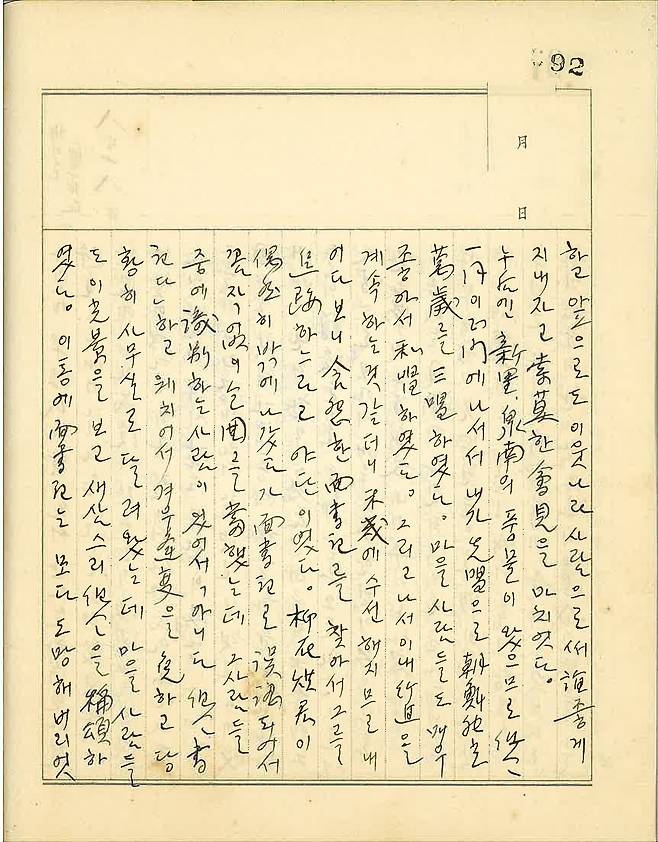 92
月
日
하고 앞으로도 이웃나라 사람으로써 誼좋게
지내자고 索莫한 會見을 마치었다。
午后엔 新里 泉南의 풍물이 왔으므로
에 나서서 내가 先唱으로 朝鮮独立
萬歲를 三唱하였다。마을 사람들도 매우
좋아서 和唱하였다。그리고나서 이내 行進을
계속하는것 같더니 未幾에 수선해지므로 내
어다 보니 含怨한 面書記를 찾아서 그를
하느라고 야단이었다。柳在 君이
偶然히 밖에 나갔다가 面書記로 誤認되어서
꼼짝없이  困를 當했는데 그 사람들
중에 識別하는 사람이 있어서 아니다 書
한다 하고 외치어서 겨우 逢変을 免하고 당
황히 사무실로 달려왔는데 마을 사람들
도 이 光景을 보고 새삼스리 을 稱頌하
였다。이 통에 面書記는 모다 도망해버리었